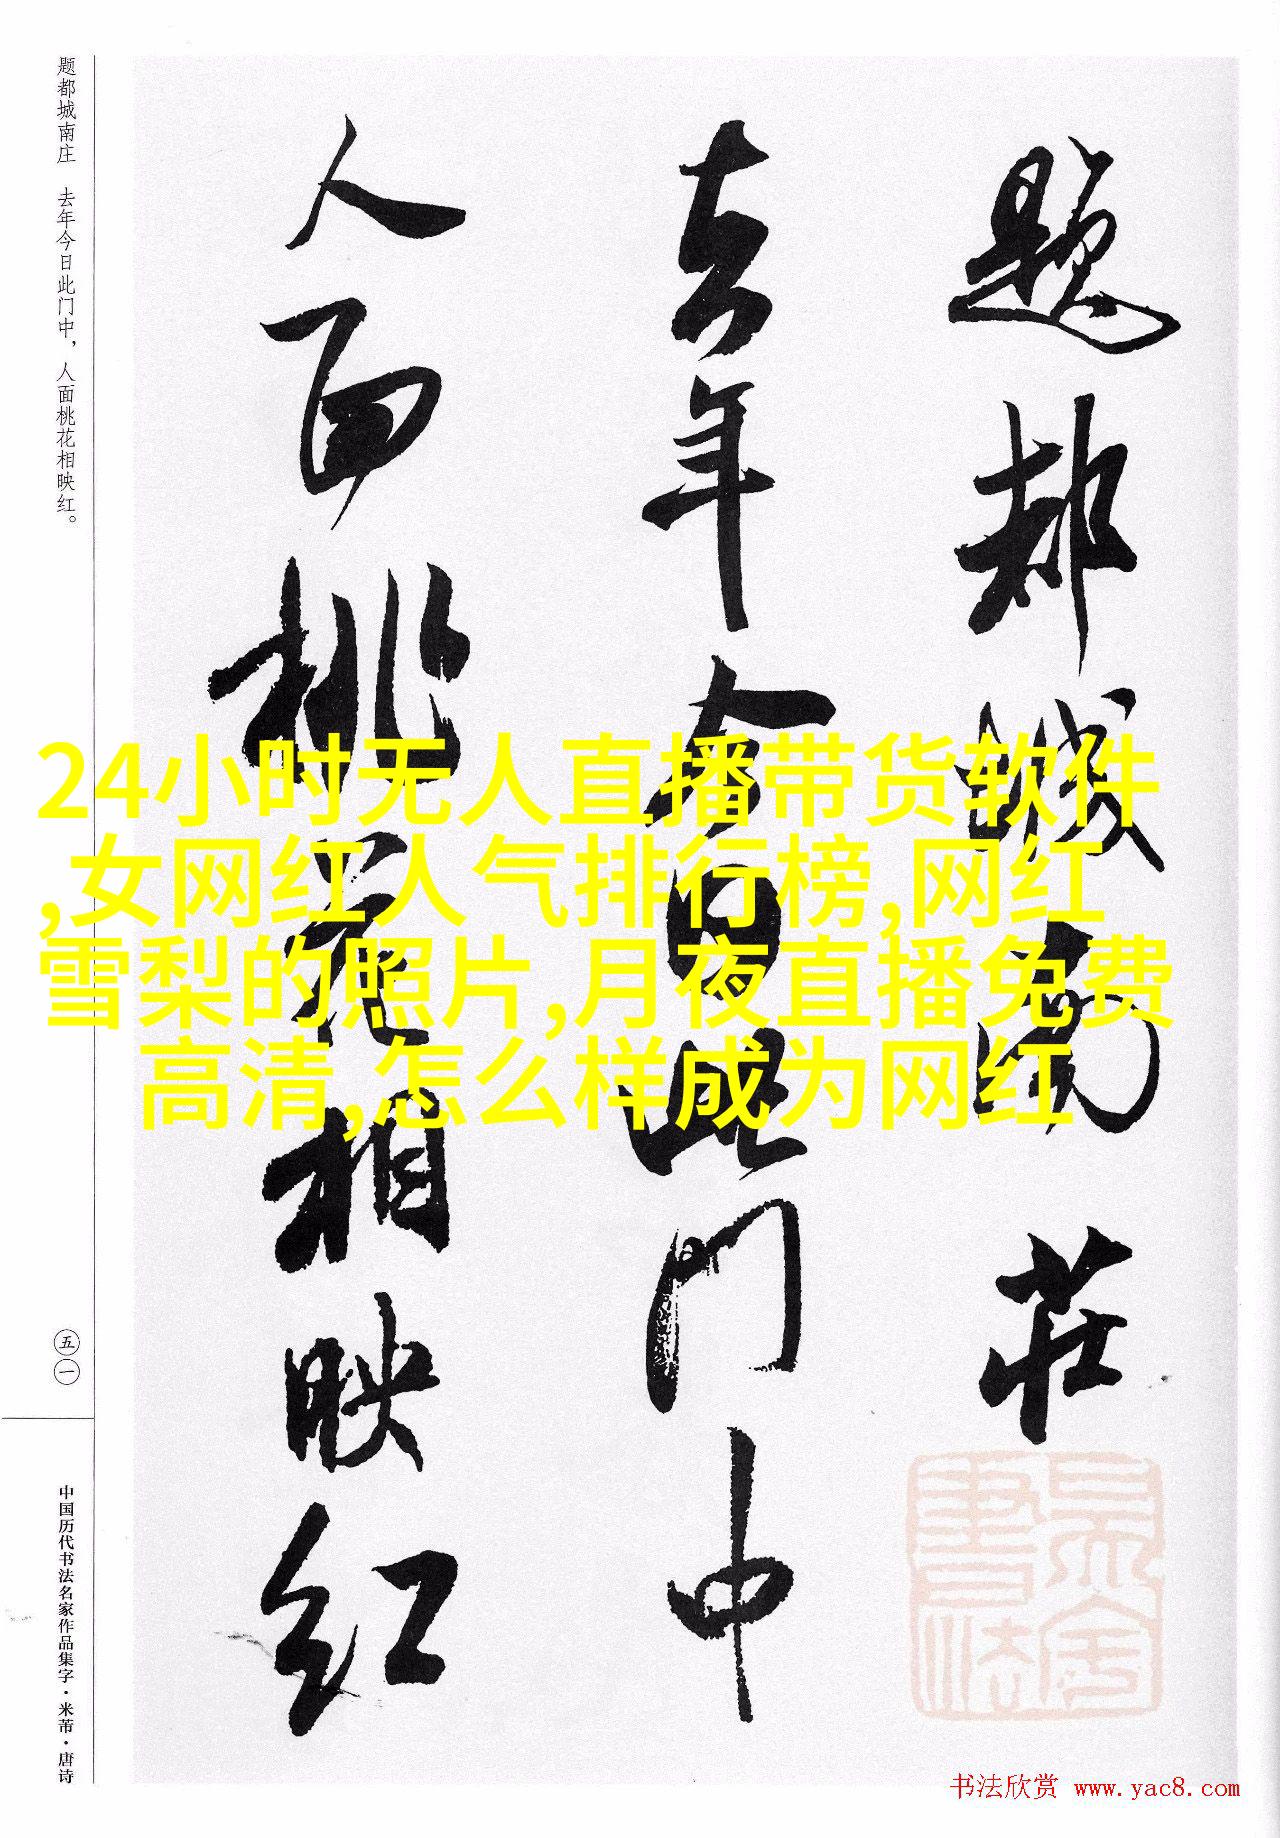 题都城南庄
去年今日此门中
人面桃花相映红
题都城南庄 去年今日此门中，人面桃花相映红。
五一
中国历代书法名家作品集字·米芾·唐诗
24小时无人直播带货软件
,女网红人气排行榜,网红
雪梨的照片,月夜直播免费
高清,怎么样成为网红
书法欣赏 www.yac8.com